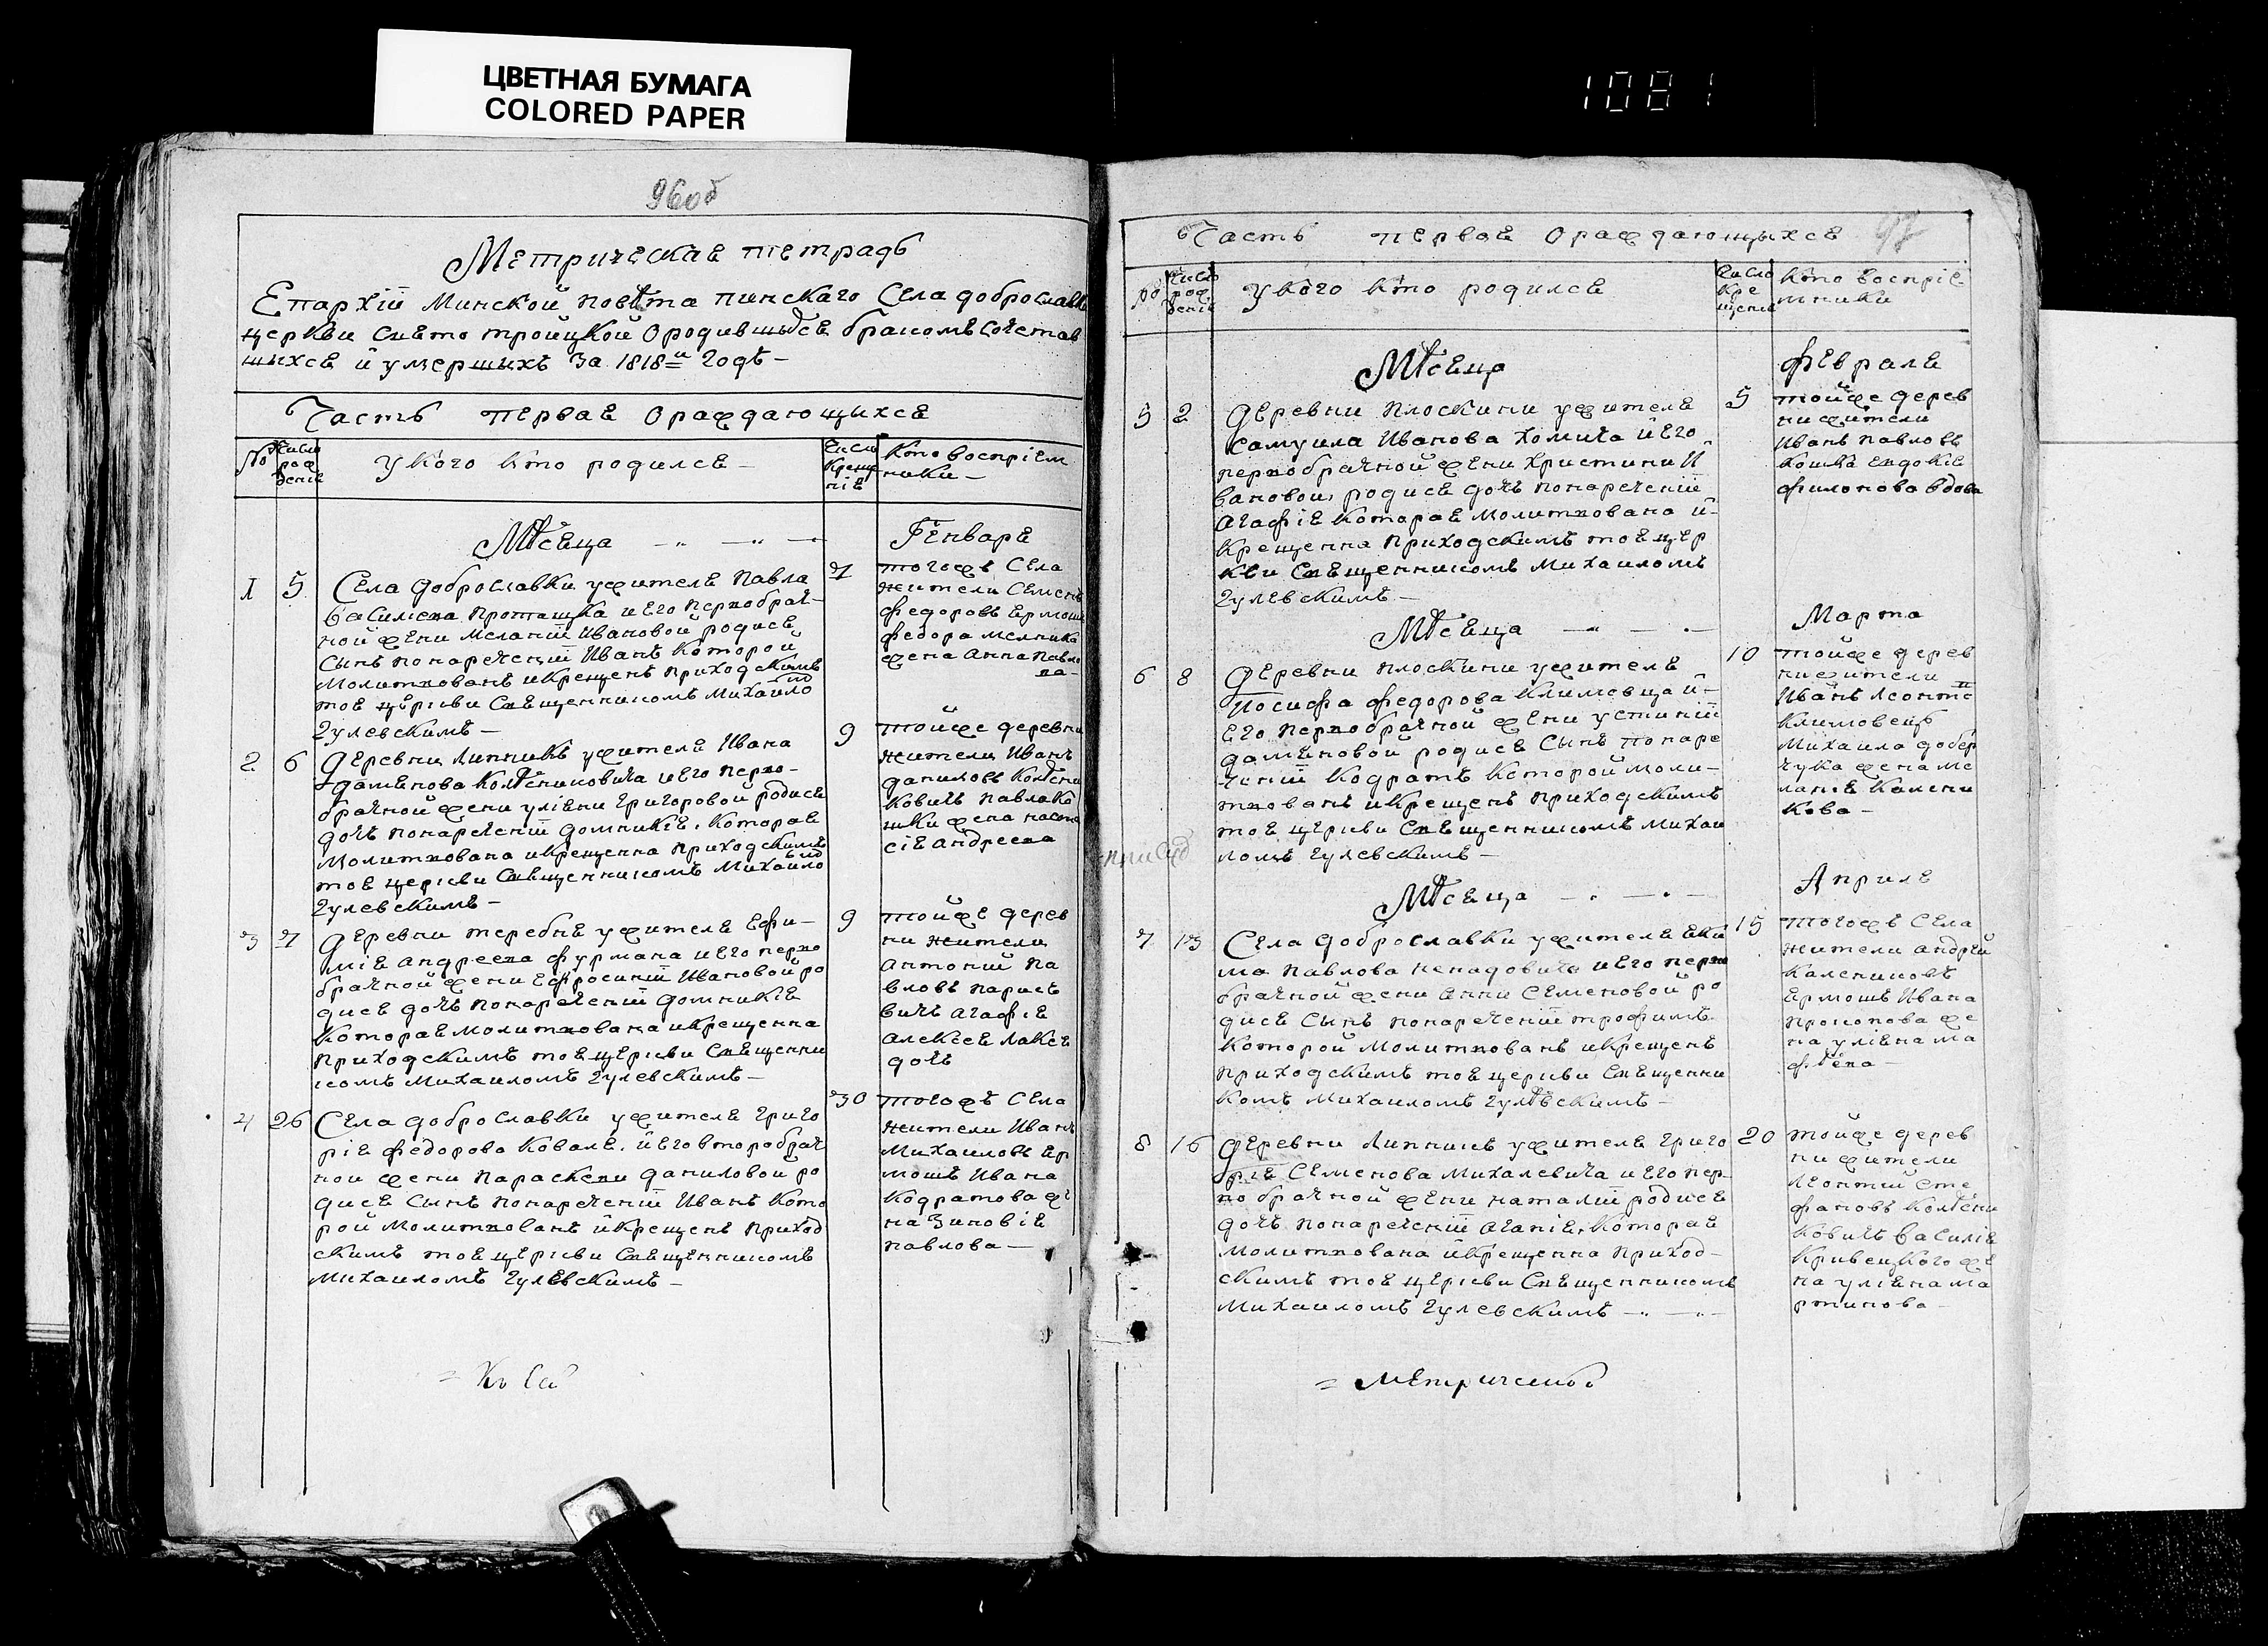 ЦВЕТНАЯ БУМАГА
COLORED PAPER
1081
96об
Метрическаѣ тетрадь
Епархіи Минской повѣта пинскаго Села доброславк
церкви Свѣто тройцкой ородившыхсѣ бракомъ сочетав
шыхсѣ й умершыхъ за 1818 и годъ —
Часть перваѣ ораждающыхсѣ
№
Число
рож
деніѣ
У кого кто родилсѣ —
Число
креще
ніѣ
Кто воспріем
ники —
Мѣсеца
Генварѣ
1 5
Села доброславки ужителѣ Павла
василева Проташка и его первобрач-
ной жени Меланіи Ивановой родисѣ
Сынъ понареченіи Иванъ Которой
Молитвованъ икрещенъ приходскимъ
тоѣ церкви Свѣщенникомъ Михайло
гулевскимъ —
7
тогожъ Села
жители Семенъ
федоровъ Ермош
федора мелника
жена Анна Павло
ва —
2 6
деревни Липникъ ужителѣ Ивана
дамѣнова Колѣниковича иего перво-
брачной жени улiѣни григоровой родисѣ
дочъ понареченіи домникіѣ, Котораѣ
Молитвована икрещенна приходскимъ
тоѣ церкви Свѣщенникомъ Михайло
гулевскимъ —
9
тойже деревни
жители Иванъ
даниловъ Колѣни
ковичъ Павла Ко
шки жена наста
сіѣ андреева
3 7
деревни теребнѣ ужителѣ Ефи-
міѣ андреева фурмана иего перво
брачной жени Ефросиніи Ивановой ро
дисѣ дочъ понареченіи домникіѣ
Котораѣ молитвована икрещенна
приходскимъ тоѣ церкви Свѣщенни
комъ Михаиломъ гулевскимъ —
9
тойжѣ дерев
ни жители
Антоній Па
вловъ парисѣ
вичъ агафіѣ
Алексѣѣ лаксѣ
дочъ
4 26
Села доброславки ужителѣ григо
ріѣ федорова Ковалѣ, йего второбрач
ной жени Параскеви даниловой ро
дисѣ Сынъ понареченіи Иванъ Кото
рой молитвованъ йкрещенъ приход
скимъ тоѣ церкви Свѣщенникомъ
михаиломъ гулевскимъ —
30
тогожъ Села
жители Иванъ
Михаиловъ Ер
мошъ Ивана
Кодратова же
на Зиновіѣ
павлова —
Часть перваѣ ораждающыхсѣ
97
№
Число
рож
деніѣ
У кого кто родилсѣ
Число
кре
щеніѣ
Кто воспріѣ
мники
Мѣсеца
февралѣ
5 2
деревни Плоскини ужителѣ
Самуила Иванова хомича йего
первобрачной жени христини И
вановой, родисѣ дочъ понареченіи
агафіѣ Котораѣ молитвована й-
Крещенна приходскимъ тоѣ цер
кви Свѣщенникомъ Михаиломъ
гулевскимъ —
5
тойже дерев
ни жители
Иванъ павловъ
Кошка Евдокіѣ
филонова вдова
Мѣсеца
Марта
6 8
деревни плоскини ужителѣ
Иосифа федорова Климовица й-
Его первобрачной жени устиніи
даміѣновой родисѣ Сынъ понаре
ченіи Кодратъ Которой моли-
твованъ икрещенъ приходскимъ
тоѣ церкви Свѣщенникомъ Михаи
ломъ гулевскимъ —
10
тойже дерев
ни жители
Иванъ Леонте
Климовецъ
Михаила добер
чука жена ме
ланіѣ Калени
кова —
Мѣсеца
Априлѣ
7 13
Села доброславки ужителѣ Еки
ма Павлова ненадовича иего перво
брачной жени Анни Семеновой ро
дисѣ Сынъ понареченіи трофимъ
Которой молитвованъ икрещенъ
приходскимъ тоѣ церкви Свѣщенни
комъ Михаиломъ гулѣвскимъ —
15
тогожъ Села
жители андрѣй
Калениковъ
Ермошъ Ивана
прокопова же
на улiѣна ма
фѣева —
8 16
деревни Липникъ ужителѣ григо
ріѣ Семенова михалевича иего пер-
во брачной жени наталіи родисѣ
дочъ понареченіи агапіѣ, Котораѣ
молитвована йкрещенна приход-
скимъ тоѣ церкви Свѣщенникомъ
Михаиломъ гулевскимъ —
20
тойже дерев
ни жители
Леонтій Сте
фановъ Колѣни
ковичъ василіѣ
Кривецкого жѣ
на улiѣна ма
ртинова
= Метрической